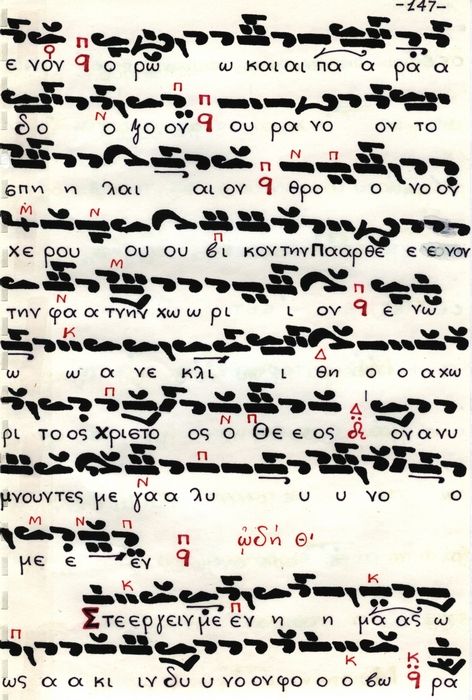 -147-
ε νον ο ρω ω και αι πα α ρα α
δο ο ξο ον ου ρα νο ον το
σπη η λαι αι ον θρο ο νο ον
χε ρου ου ου βι κον την Πα αρ θε ε ε νον
την φα α τνην χω ω ρι ι ον ε νω
ω ω α νε κλι ι θη ο ο α χω
ρι το ος χριστο ος ο Θε ε ος ον α νυ
μνουντες με γα α λυ υ υ νο ο
με ε εν ᾠδή θ'
Στε εργειν με εν η η μα ας ω
ως α α κι ιν δυ υ νο ον φο ο ο βω ρα